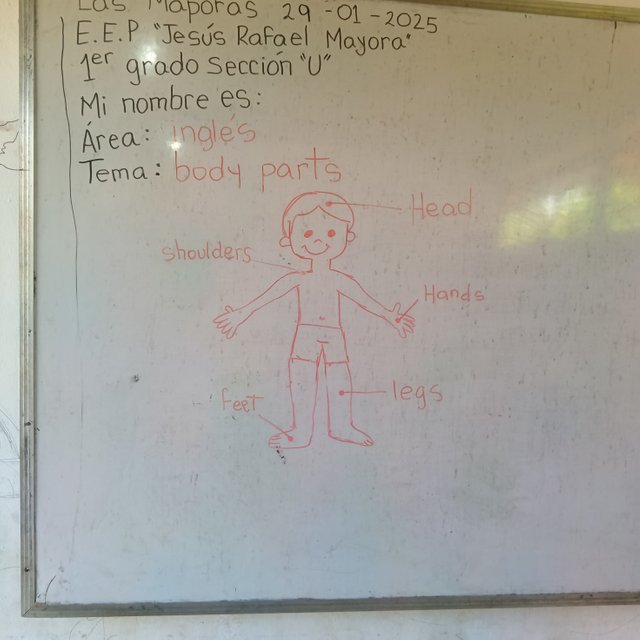 Las Maporas 29-01-2025
E.E.P "Jesús Rafael Mayora"
1er grado Sección "U"
Mi nombre es:
Área: inglés
Tema: body parts
Head
shoulders
Hands
legs
feet